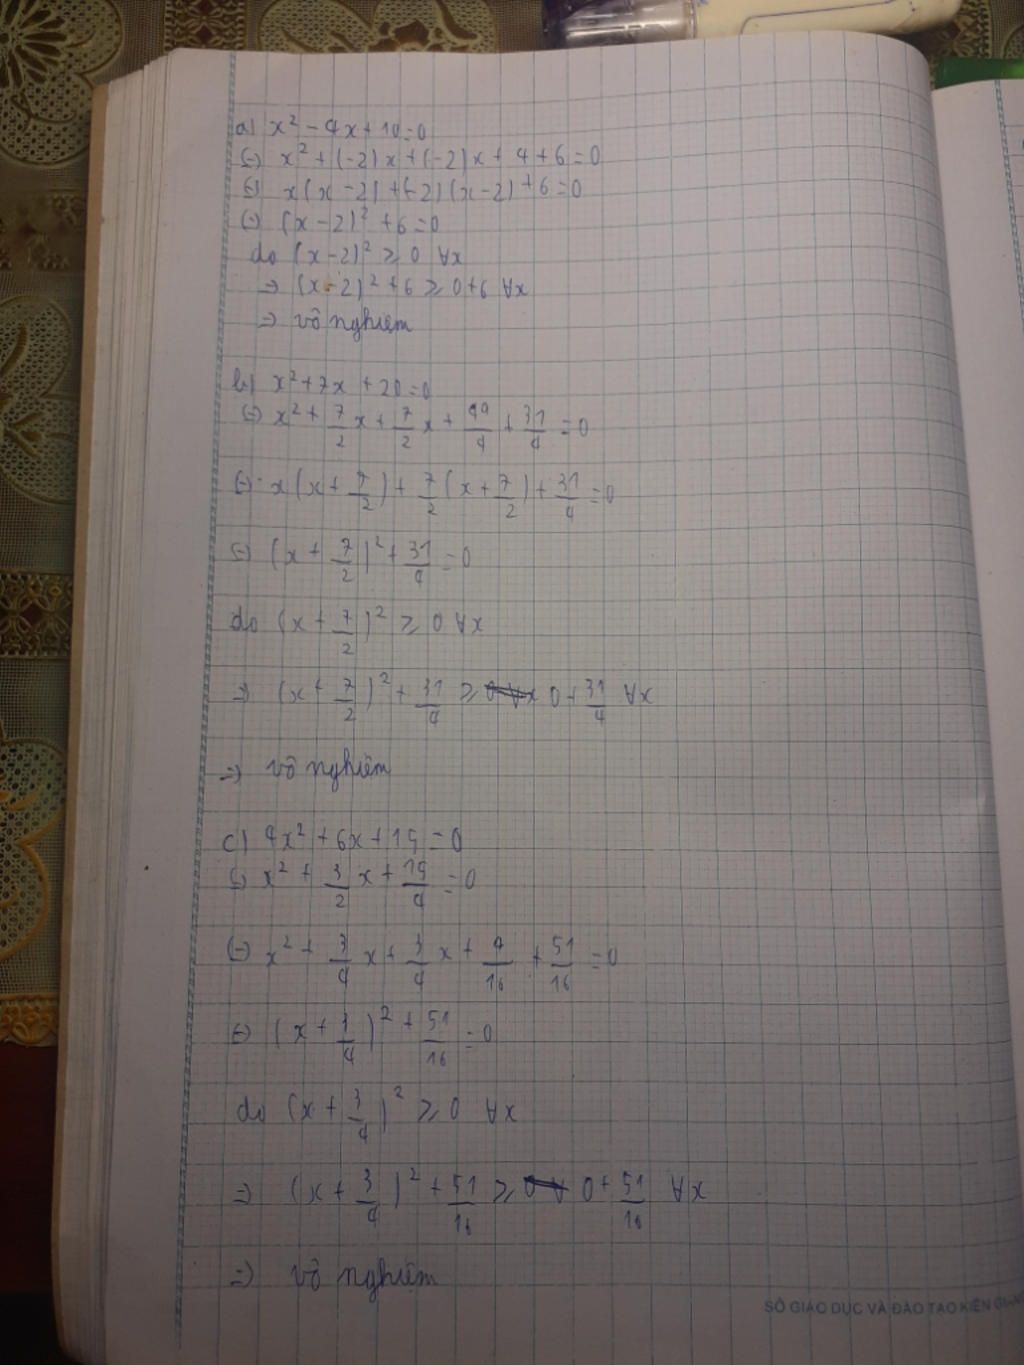 a) x² - 4x + 10 = 0
(=) x² + (-2)x + (-2)x + 4 + 6 = 0
(=) x(x - 2) + (-2)(x - 2) + 6 = 0
(=) (x - 2)² + 6 = 0
do (x - 2)² ≥ 0 ∀x
=> (x - 2)² + 6 ≥ 0 + 6 ∀x
=> vô nghiệm
b) x² + 7x + 20 = 0
(=) x² + 7/2 x + 7/2 x + 49/4 + 31/4 = 0
(=) x(x + 7/2) + 7/2 (x + 7/2) + 31/4 = 0
(=) (x + 7/2)² + 31/4 = 0
do (x + 7/2)² ≥ 0 ∀x
=> (x + 7/2)² + 31/4 ≥ 0 + 31/4 ∀x
=> vô nghiệm
c) 4x² + 6x + 15 = 0
(=) x² + 3/2 x + 15/4 = 0
(=) x² + 3/4 x + 3/4 x + 9/16 + 51/16 = 0
(=) (x + 3/4)² + 51/16 = 0
do (x + 3/4)² ≥ 0 ∀x
=> (x + 3/4)² + 51/16 ≥ 0 + 51/16 ∀x
=> vô nghiệm
SỞ GIÁO DỤC VÀ ĐÀO TẠO KIÊN